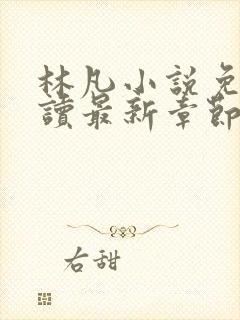 林凡小説免
讀最新章節
右甜